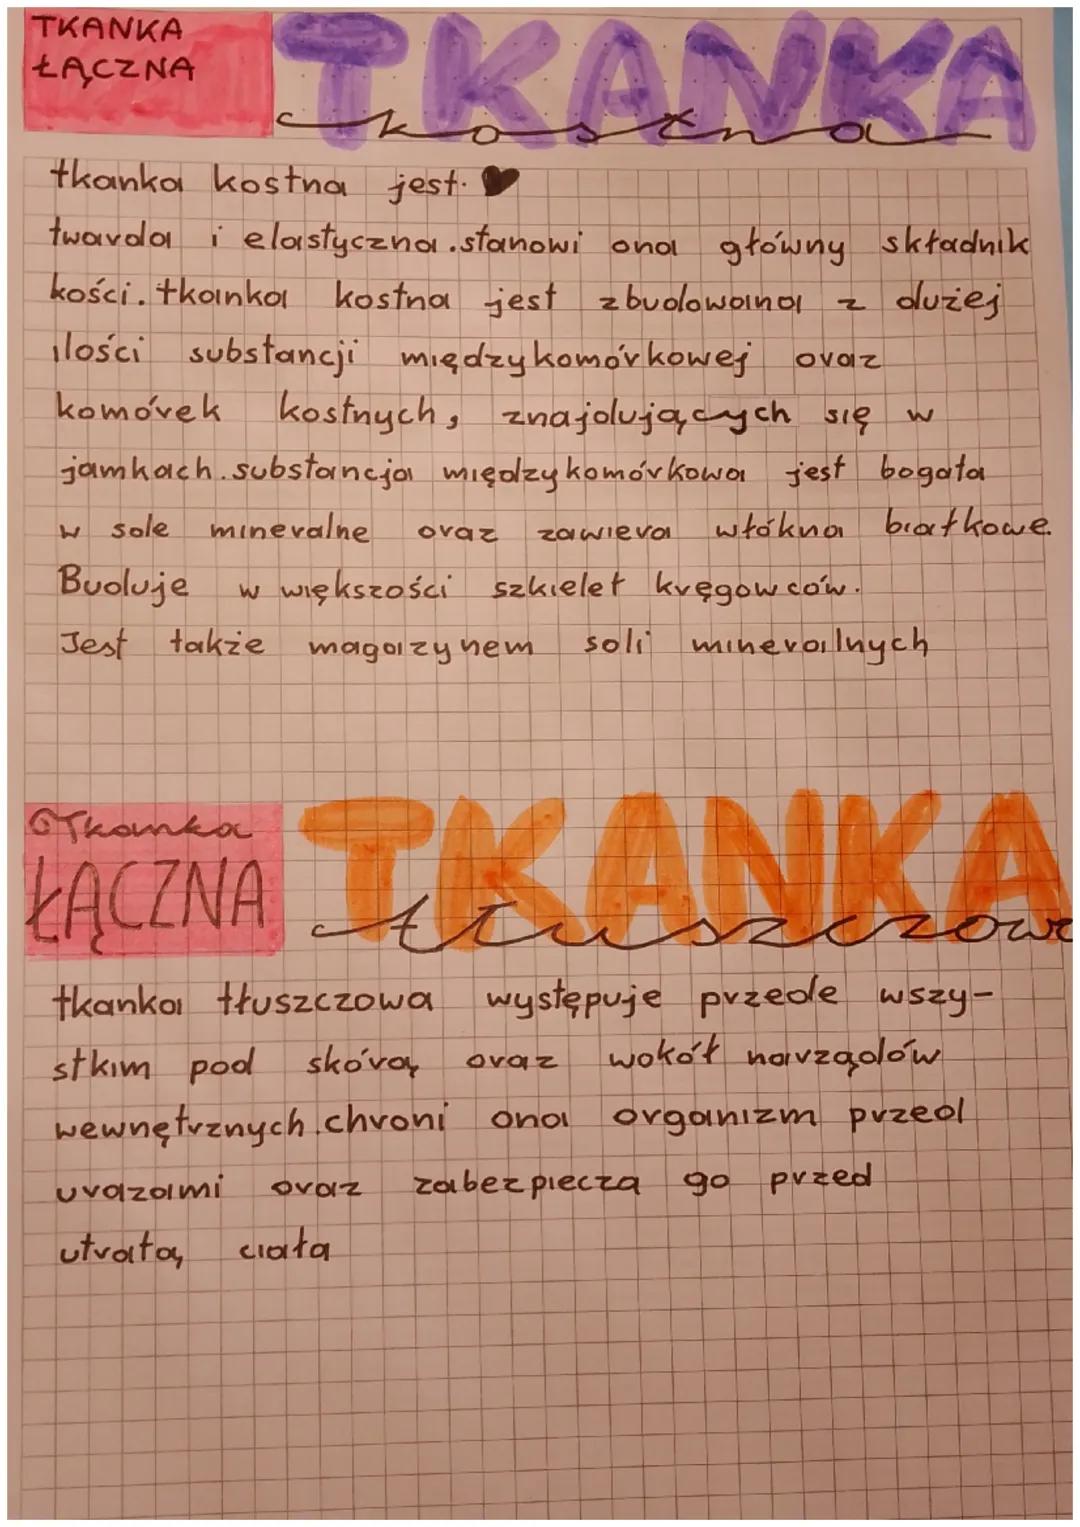 TKANKA
ŁĄCZNA
TKANKA
kostna
tkanka kostna jest.
twarda i elastyczna.stanowi ona główny składnik
kości. tkanka kostna jest zbudowana z dużej
ilości substancji międzykomórkowej oraz
komórek kostnych, znajdujących się w
jamkach.substancja międzykomórkowa jest bogata
w sole mineralne oraz zawiera włókna białkowe.
Buduje w większości szkielet kręgowców.
Jest także magazynem soli mineralnych
Tkanka
ŁĄCZNA
TKANKA
tłuszczowa
tkanka tłuszczowa występuje przede wszy-
stkim pod skórą oraz wokół narządów
wewnętrznych.chroni ona organizm przed
urazami oraz zabezpiecza go przed
utratą ciała